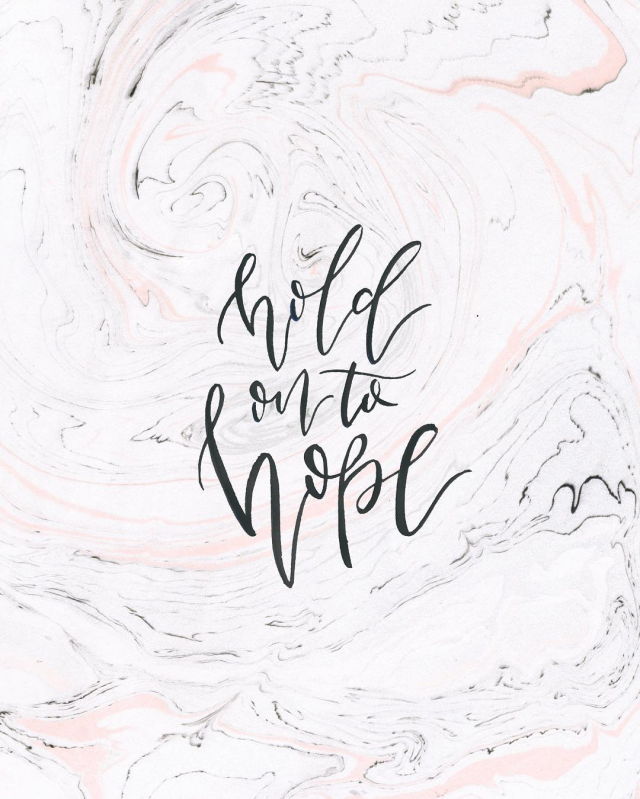 hold
on to
hope